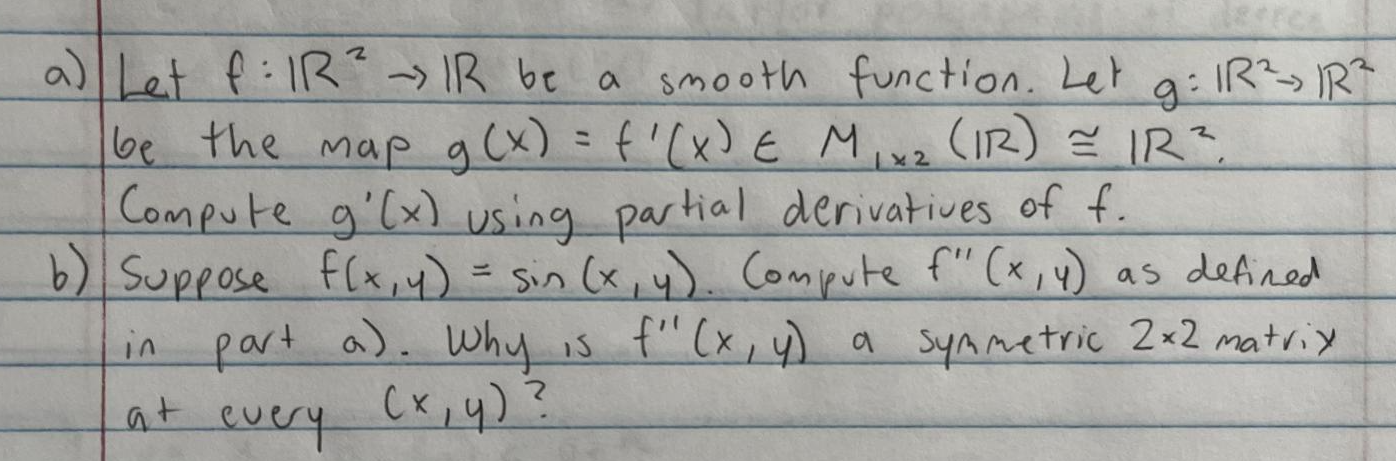 a) Let f : ℝ² → ℝ be a smooth function. Let g : ℝ² → ℝ²
be the map g(x) = f'(x) ∈ M₁ₓ₂ (ℝ) ≅ ℝ².
Compute g'(x) using partial derivatives of f.
b) Suppose f(x,y) = sin(x,y). Compute f''(x,y) as defined
in part a). Why is f''(x,y) a symmetric 2×2 matrix
at every (x,y)?